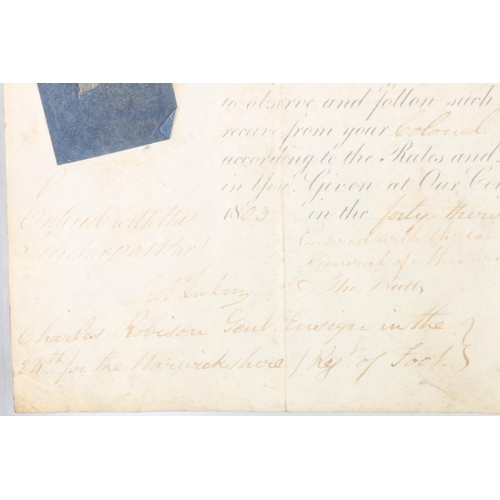 to observe and follow such
receive from your Colonel
according to the Rules and
in You. Given at Our Co
1803 in the forty third
Entered with the
Secretary at War
Entered with the Com
General of Musters
Charles Robison Gent. Ensign in the
24th or the Warwickshire Regt. of Foot